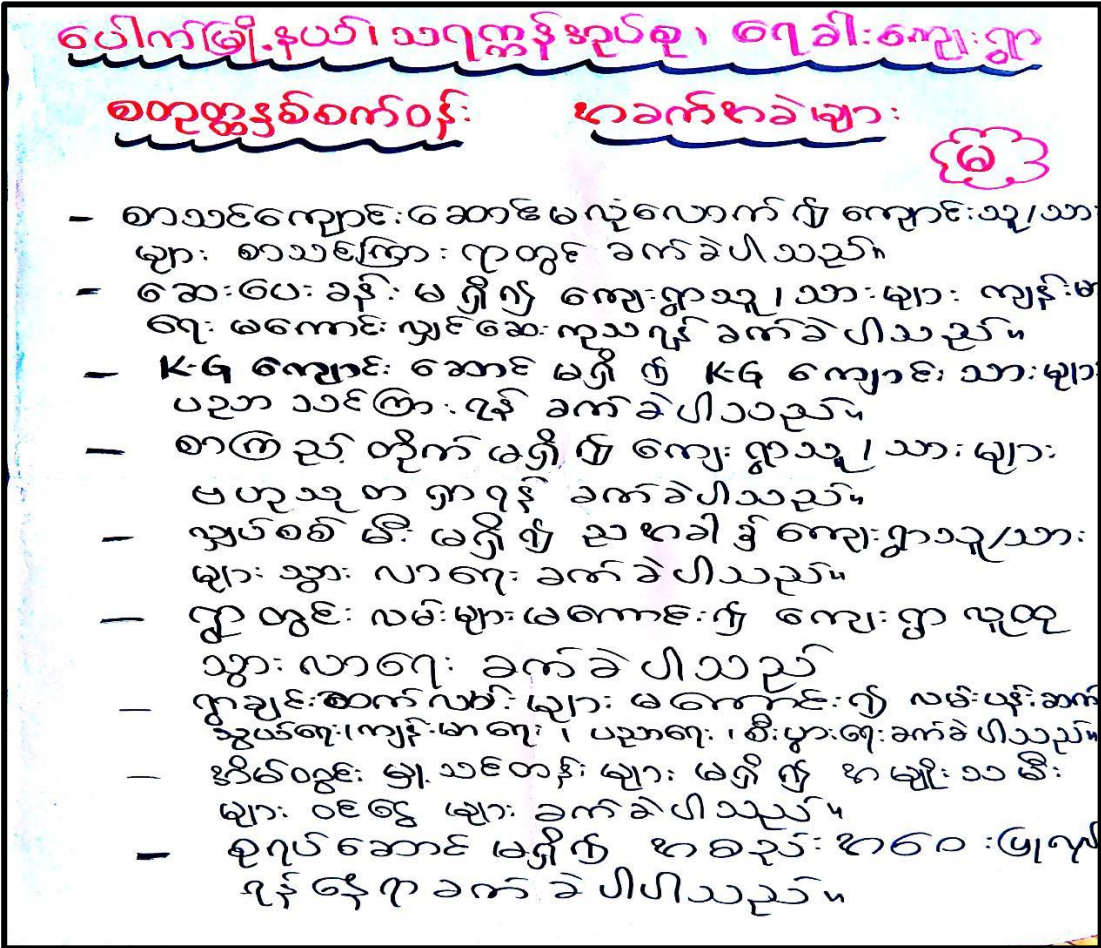 ပေါက်မြို့နယ်၊ သရက္ကန်အုပ်စု၊ ရေခါးကျေးရွာ
စတုတ္ထနှစ်စက်ဝန်း အခက်အခဲများ
မ
- စာသင်ကျောင်းဆောင်မလုံလောက်၍ ကျောင်းသူ/သား
များ စာသင်ကြားရာတွင် ခက်ခဲပါသည်။
- ဆေးပေးခန်းမရှိ၍ ကျေးရွာသူ/သားများ ကျန်းမာ
ရေး မကောင်းလျှင် ဆေးကုသရန် ခက်ခဲပါသည်။
- K-G ကျောင်းဆောင် မရှိ၍ K-G ကျောင်းသားများ
ပညာ သင်ကြားရန် ခက်ခဲပါသည်။
- စာကြည့်တိုက်မရှိ၍ ကျေးရွာသူ/သားများ
ဗဟုသုတ ရှာရန် ခက်ခဲပါသည်။
- လျှပ်စစ်မီး မရှိ၍ ညအခါ၌ ကျေးရွာသူ/သား
များ သွားလာရေး ခက်ခဲပါသည်။
- ရွာတွင်း လမ်းများမကောင်း၍ ကျေးရွာ လူထု
သွားလာရေး ခက်ခဲပါသည်
- ရွာချင်းဆက်လမ်းများ မကောင်း၍ လမ်းပန်းဆက်
သွယ်ရေး၊ ကျန်းမာရေး၊ ပညာရေး၊ စီးပွားရေးခက်ခဲပါသည်။
- အိမ်တွင်းမှု သင်တန်းများ မရှိ၍ အမျိုးသမီး
များ ဝင်ငွေများ ခက်ခဲပါသည်။
- စုရပ်ဆောင် မရှိ၍ အစည်းအဝေးပြုလုပ်
ရန်နေရာခက်ခဲပါပါသည်။